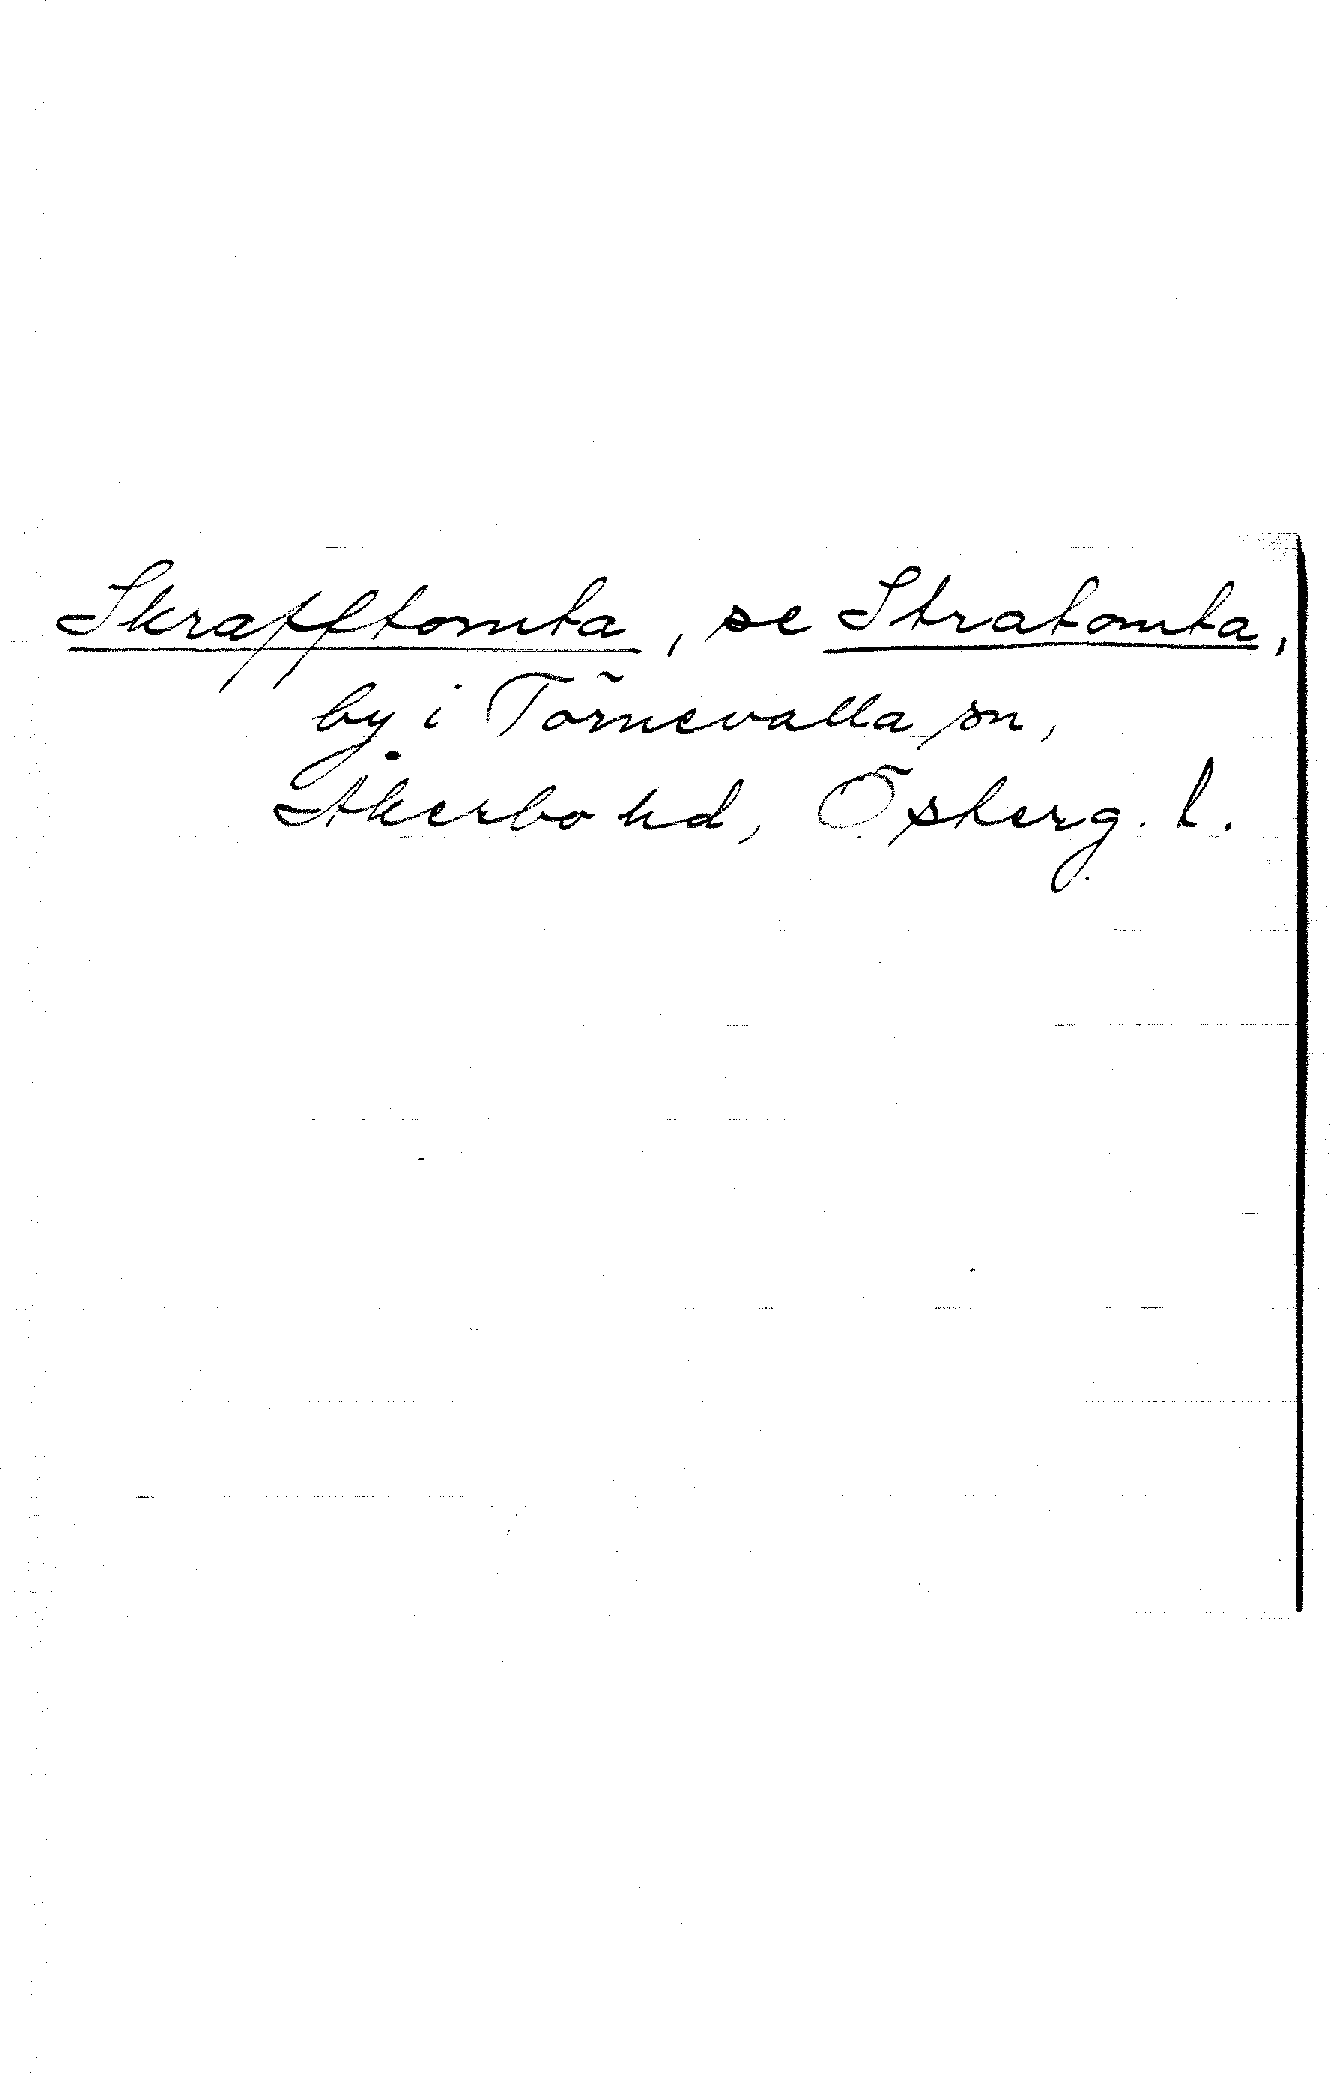 Skrafftomta, se Stratomta,
by i Törnevalla sn,
Åkerbo hd, Österg. l.